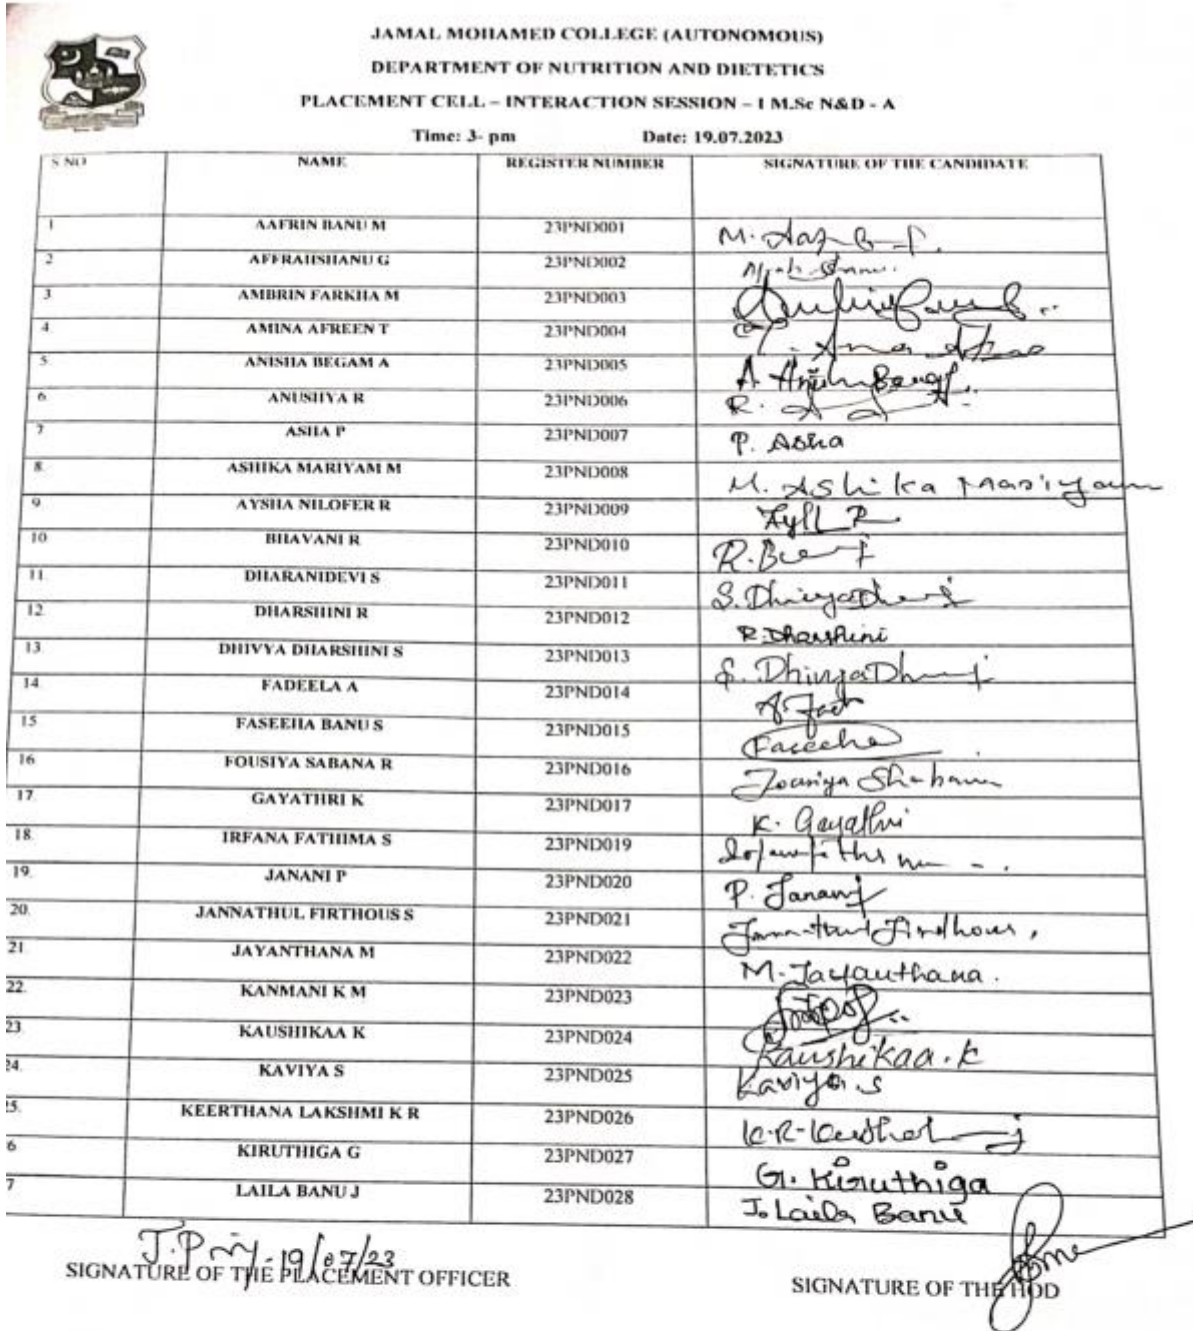 JAMAL MOHAMED COLLEGE (AUTONOMOUS)
DEPARTMENT OF NUTRITION AND DIETETICS
PLACEMENT CELL – INTERACTION SESSION – I M.Sc N&D - A
Time: 3- pm Date: 19.07.2023
S NO NAME REGISTER NUMBER SIGNATURE OF THE CANDIDATE
1 AAFRIN BANU M 23PND001
2 AFFRAHSHANU G 23PND002
3 AMBRIN FARKHA M 23PND003
4. AMINA AFREEN T 23PND004
5. ANISHA BEGAM A 23PND005
6 ANUSHYA R 23PND006
7 ASHA P 23PND007 P. Asha
8. ASHIKA MARIYAM M 23PND008 M. Ashika Mariyam
9 AYSHA NILOFER R 23PND009
10 BHAVANI R 23PND010
11 DHARANIDEVI S 23PND011
12 DHARSHINI R 23PND012 R. Dharshini
13. DHIVYA DHARSHINI S 23PND013
14. FADEELA A 23PND014
15 FASEEHA BANU S 23PND015
16 FOUSIYA SABANA R 23PND016
17. GAYATHRI K 23PND017 K. Gayathri
18. IRFANA FATHIMA S 23PND019
19. JANANI P 23PND020 P. Janani
20. JANNATHUL FIRTHOUS S 23PND021
21 JAYANTHANA M 23PND022 M. Jayanthana.
22. KANMANI K M 23PND023
23. KAUSHIKAA K 23PND024 Kaushikaa. K
24. KAVIYA S 23PND025 Kaviya. S
25. KEERTHANA LAKSHMI K R 23PND026
6 KIRUTHIGA G 23PND027 G. Kiruthiga
7 LAILA BANU J 23PND028 J. Laila Banu
19/07/23
SIGNATURE OF THE PLACEMENT OFFICER SIGNATURE OF THE HOD